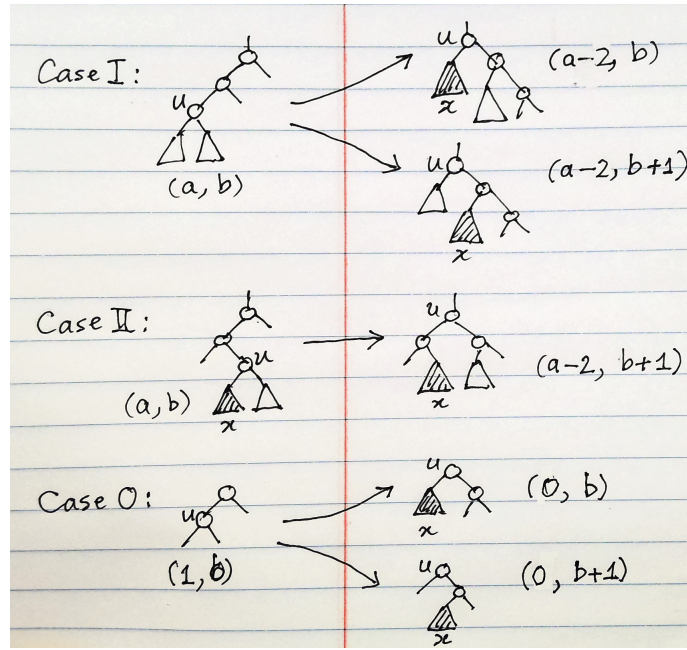 Case I:
u
(a, b)
u
x
(a-2, b)
u
x
(a-2, b+1)
Case II:
u
(a, b)
x
u
x
(a-2, b+1)
Case 0:
u
(1, b)
u
x
(0, b)
u
x
(0, b+1)